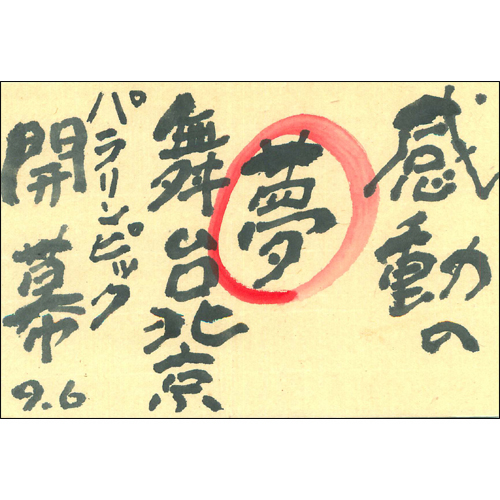 感動の
夢
舞台北京
パラリンピック
開幕
9.6